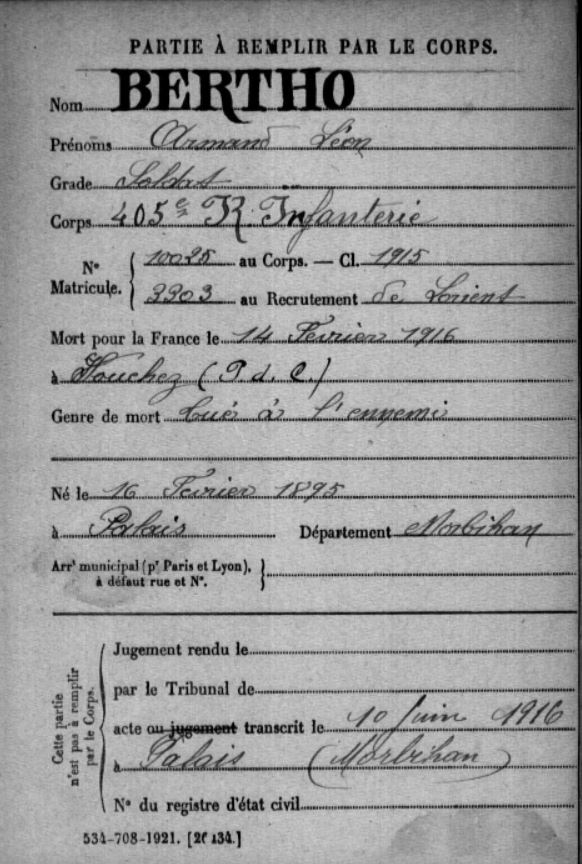 PARTIE À REMPLIR PAR LE CORPS.
Nom BERTHO
Prénoms Armand Léon
Grade Soldat
Corps 405e R. Infanterie
No Matricule. { 10025 au Corps. — Cl. 1915
3303 au Recrutement de Lorient
Mort pour la France le 14 Février 1916
à Souchez (P. d. C.)
Genre de mort tué à l'ennemi
Né le 16 Février 1895
à Palais Département Morbihan
Arrt municipal (pr Paris et Lyon),
à défaut rue et No. }
Cette partie n'est pas à remplir par le Corps. {
Jugement rendu le
par le Tribunal de
acte ou jugement transcrit le 10 Juin 1916
à Palais (Morbihan)
No du registre d'état civil
534-708-1921. [26134.]